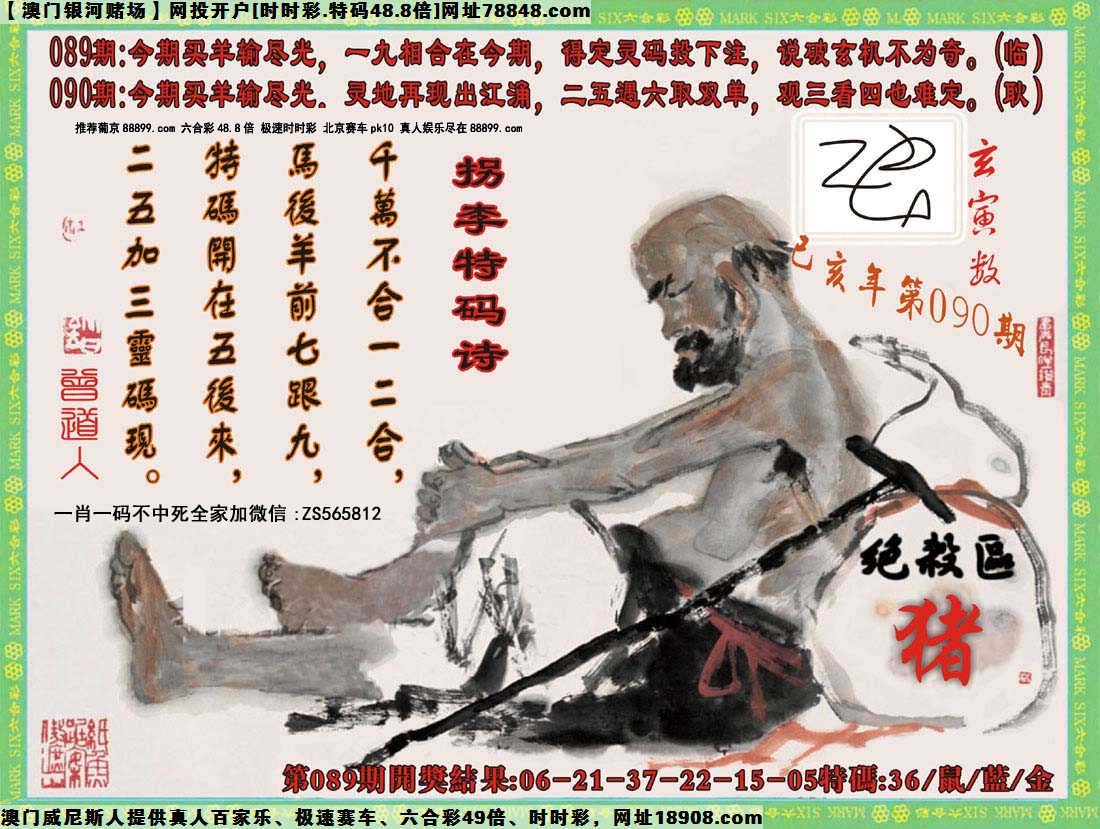 【 澳门银河赌场 】网投开户[时时彩.特码48.8倍]网址78848.com
MARK SIX六合彩
089期:今期买羊输尽光，一九相合在今期，得定灵码投下注，说破玄机不为奇。(临)
090期:今期买羊输尽光．灵地再现出江湧，二五遇六取双单，观三看四也难定。(耿)
推荐葡京88899.com 六合彩48.8倍 极速时时彩 北京赛车pk10 真人娱乐尽在88899.com
玄寅数
己亥年第090期
拐李特码诗
千萬不合一二合，
馬後羊前七跟九，
特碼開在五後來，
二五加三靈碼現。
曾道人
一肖一码不中死全家加微信:ZS565812
绝殺區
猪
第089期開獎結果:06-21-37-22-15-05特碼:36/鼠/藍/金
澳门威尼斯人提供真人百家乐、极速赛车、六合彩49倍、时时彩，网址18908.com